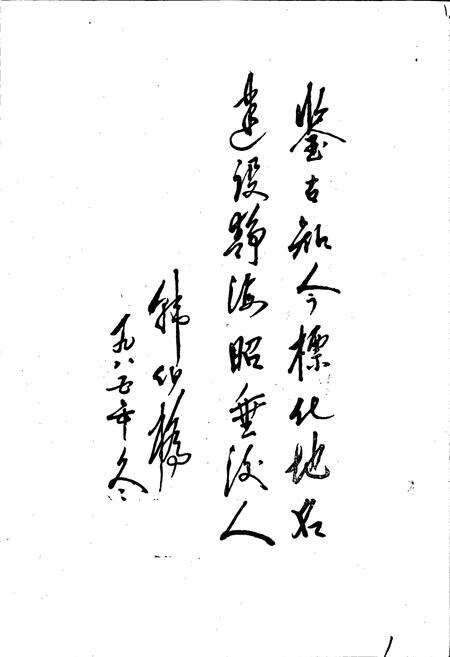 鉴古知今標化地名
建设静海昭垂後人
韩
一九八五年冬